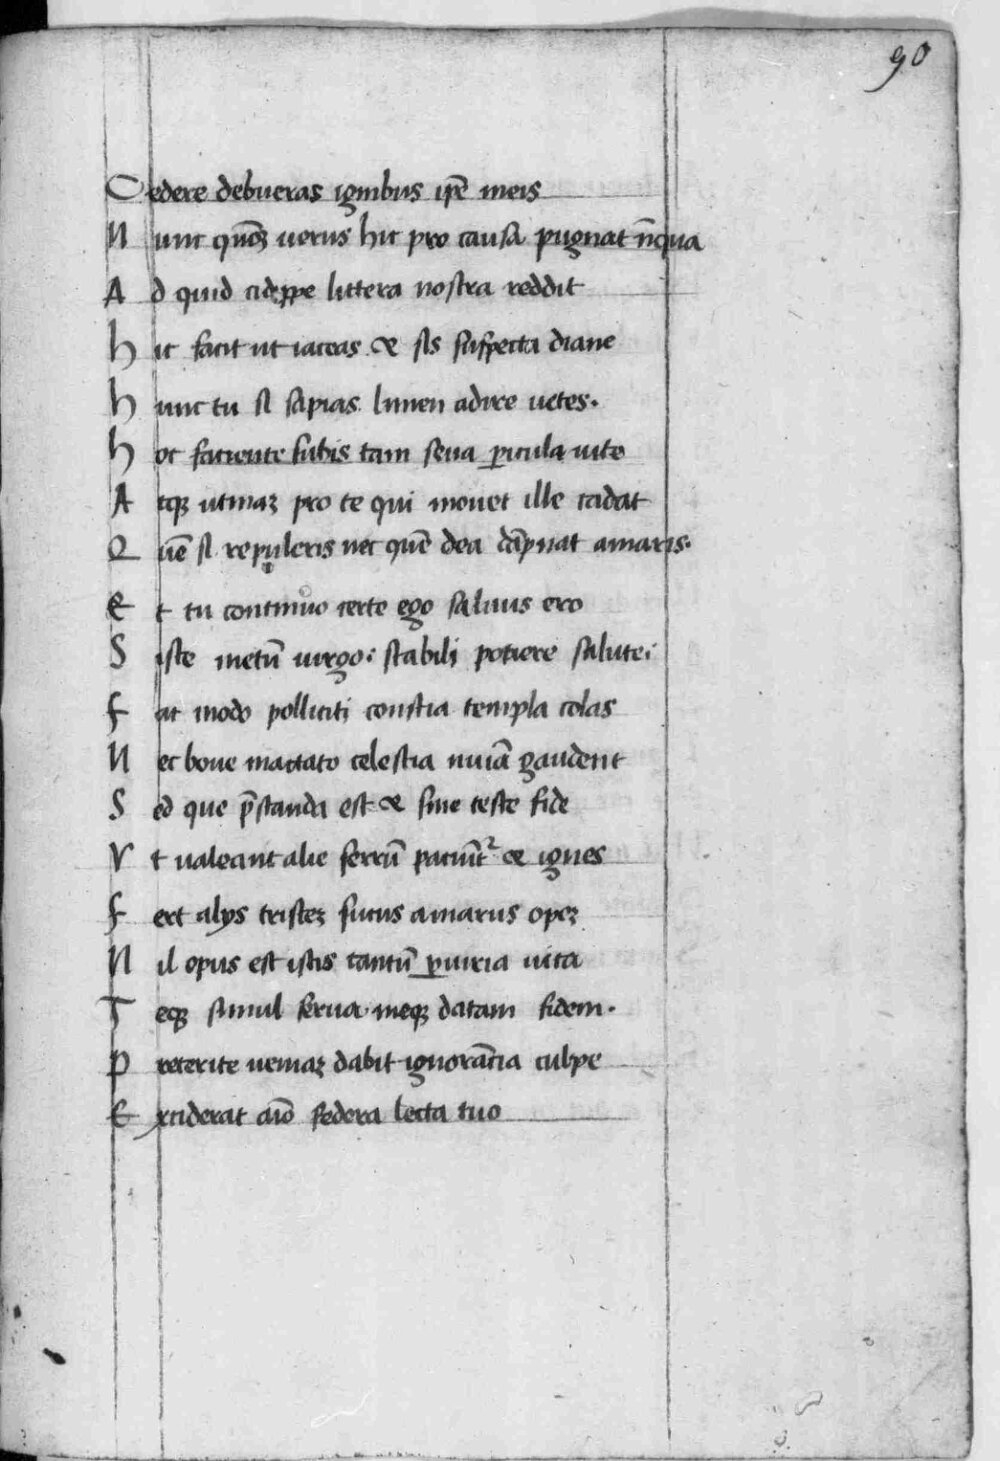 90
Cedere debueras ignibus ip̄e meis
Nunc quoq̄ uerus hic pro causa pugnat iniqua
Ad quid cidippe littera nostra reddit
Hic facit ut iaceas & sis suspecta diane
Hunc tu si sapias limen adire uetes.
Hoc faciente subis tam seua ꝑicula uite
Atqꝫ utinaꝫ pro te qui mouet ille cadat
Quē si repuleris nec quē dea dāpnat amaris.
Et tu continuo certe ego saluus ero
Siste metū uirgo: stabili potiere salute:
Fac modo polliciti conscia templa colas
Nec boue mactato celestia numīa gaudent
Sed que p̄standa est & sine teste fide
Vt ualeant alie ferrū patiunt᷑ & ignes
Fert alijs tristeꝫ sucus amarus opeꝫ
Nil opus est istis tantū ꝑiuria uita
Teqꝫ simul serua meqꝫ datam fidem.
Preterite ueniaꝫ dabit ignorātia culpe
Exciderat aīo federa lecta tuo